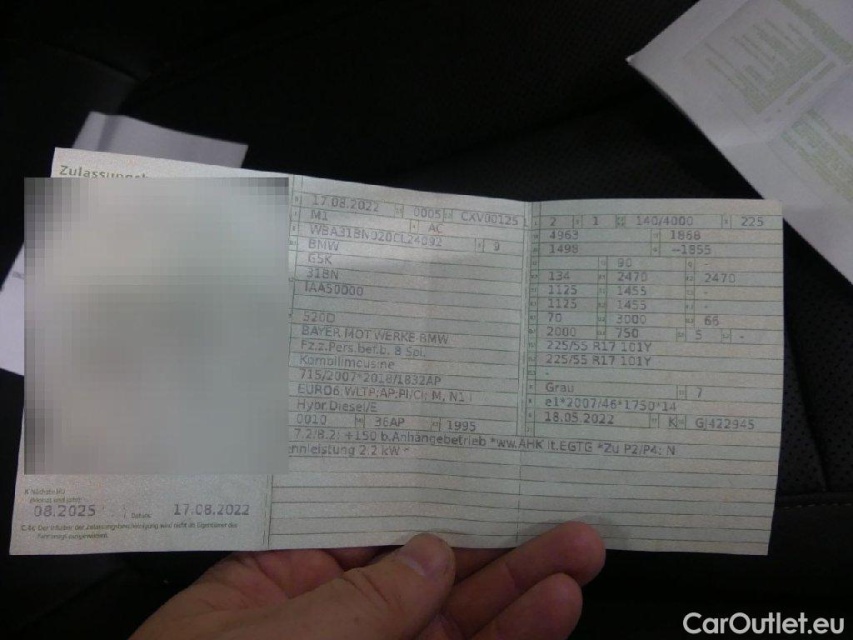 Zulassungsb
17.08.2022 0005 CXV00125
M1 AC
WBA31BN920CL24092 9
BMW
G5K
31BN
IAA50000
520D
BAYER.MOT.WERKE-BMW
Fz.z.Pers.bef.b. 8 Spl.
Kombilimousine
715/2007*2018/1832AP
EURO6,WLTP;AP;PI/CI; M, N1 I
Hybr.Diesel/E
0010 36AP 1995
7.2/8.2: +150 b.Anhängebetrieb *ww.AHK lt.EGTG *Zu P2/P4: N
ennleistung 2.2 kW *
2 1 140/4000 225
4963 1868
1498 -1855
- 90 -
134 2470 2470
1125 1455 -
1125 1455 -
70 3000 66
2000 750 5 -
225/55 R17 101Y
225/55 R17 101Y
-
Grau 7
e1*2007/46*1750*14
18.05.2022 K GJ422945
08.2025 Datum: 17.08.2022
CarOutlet.eu